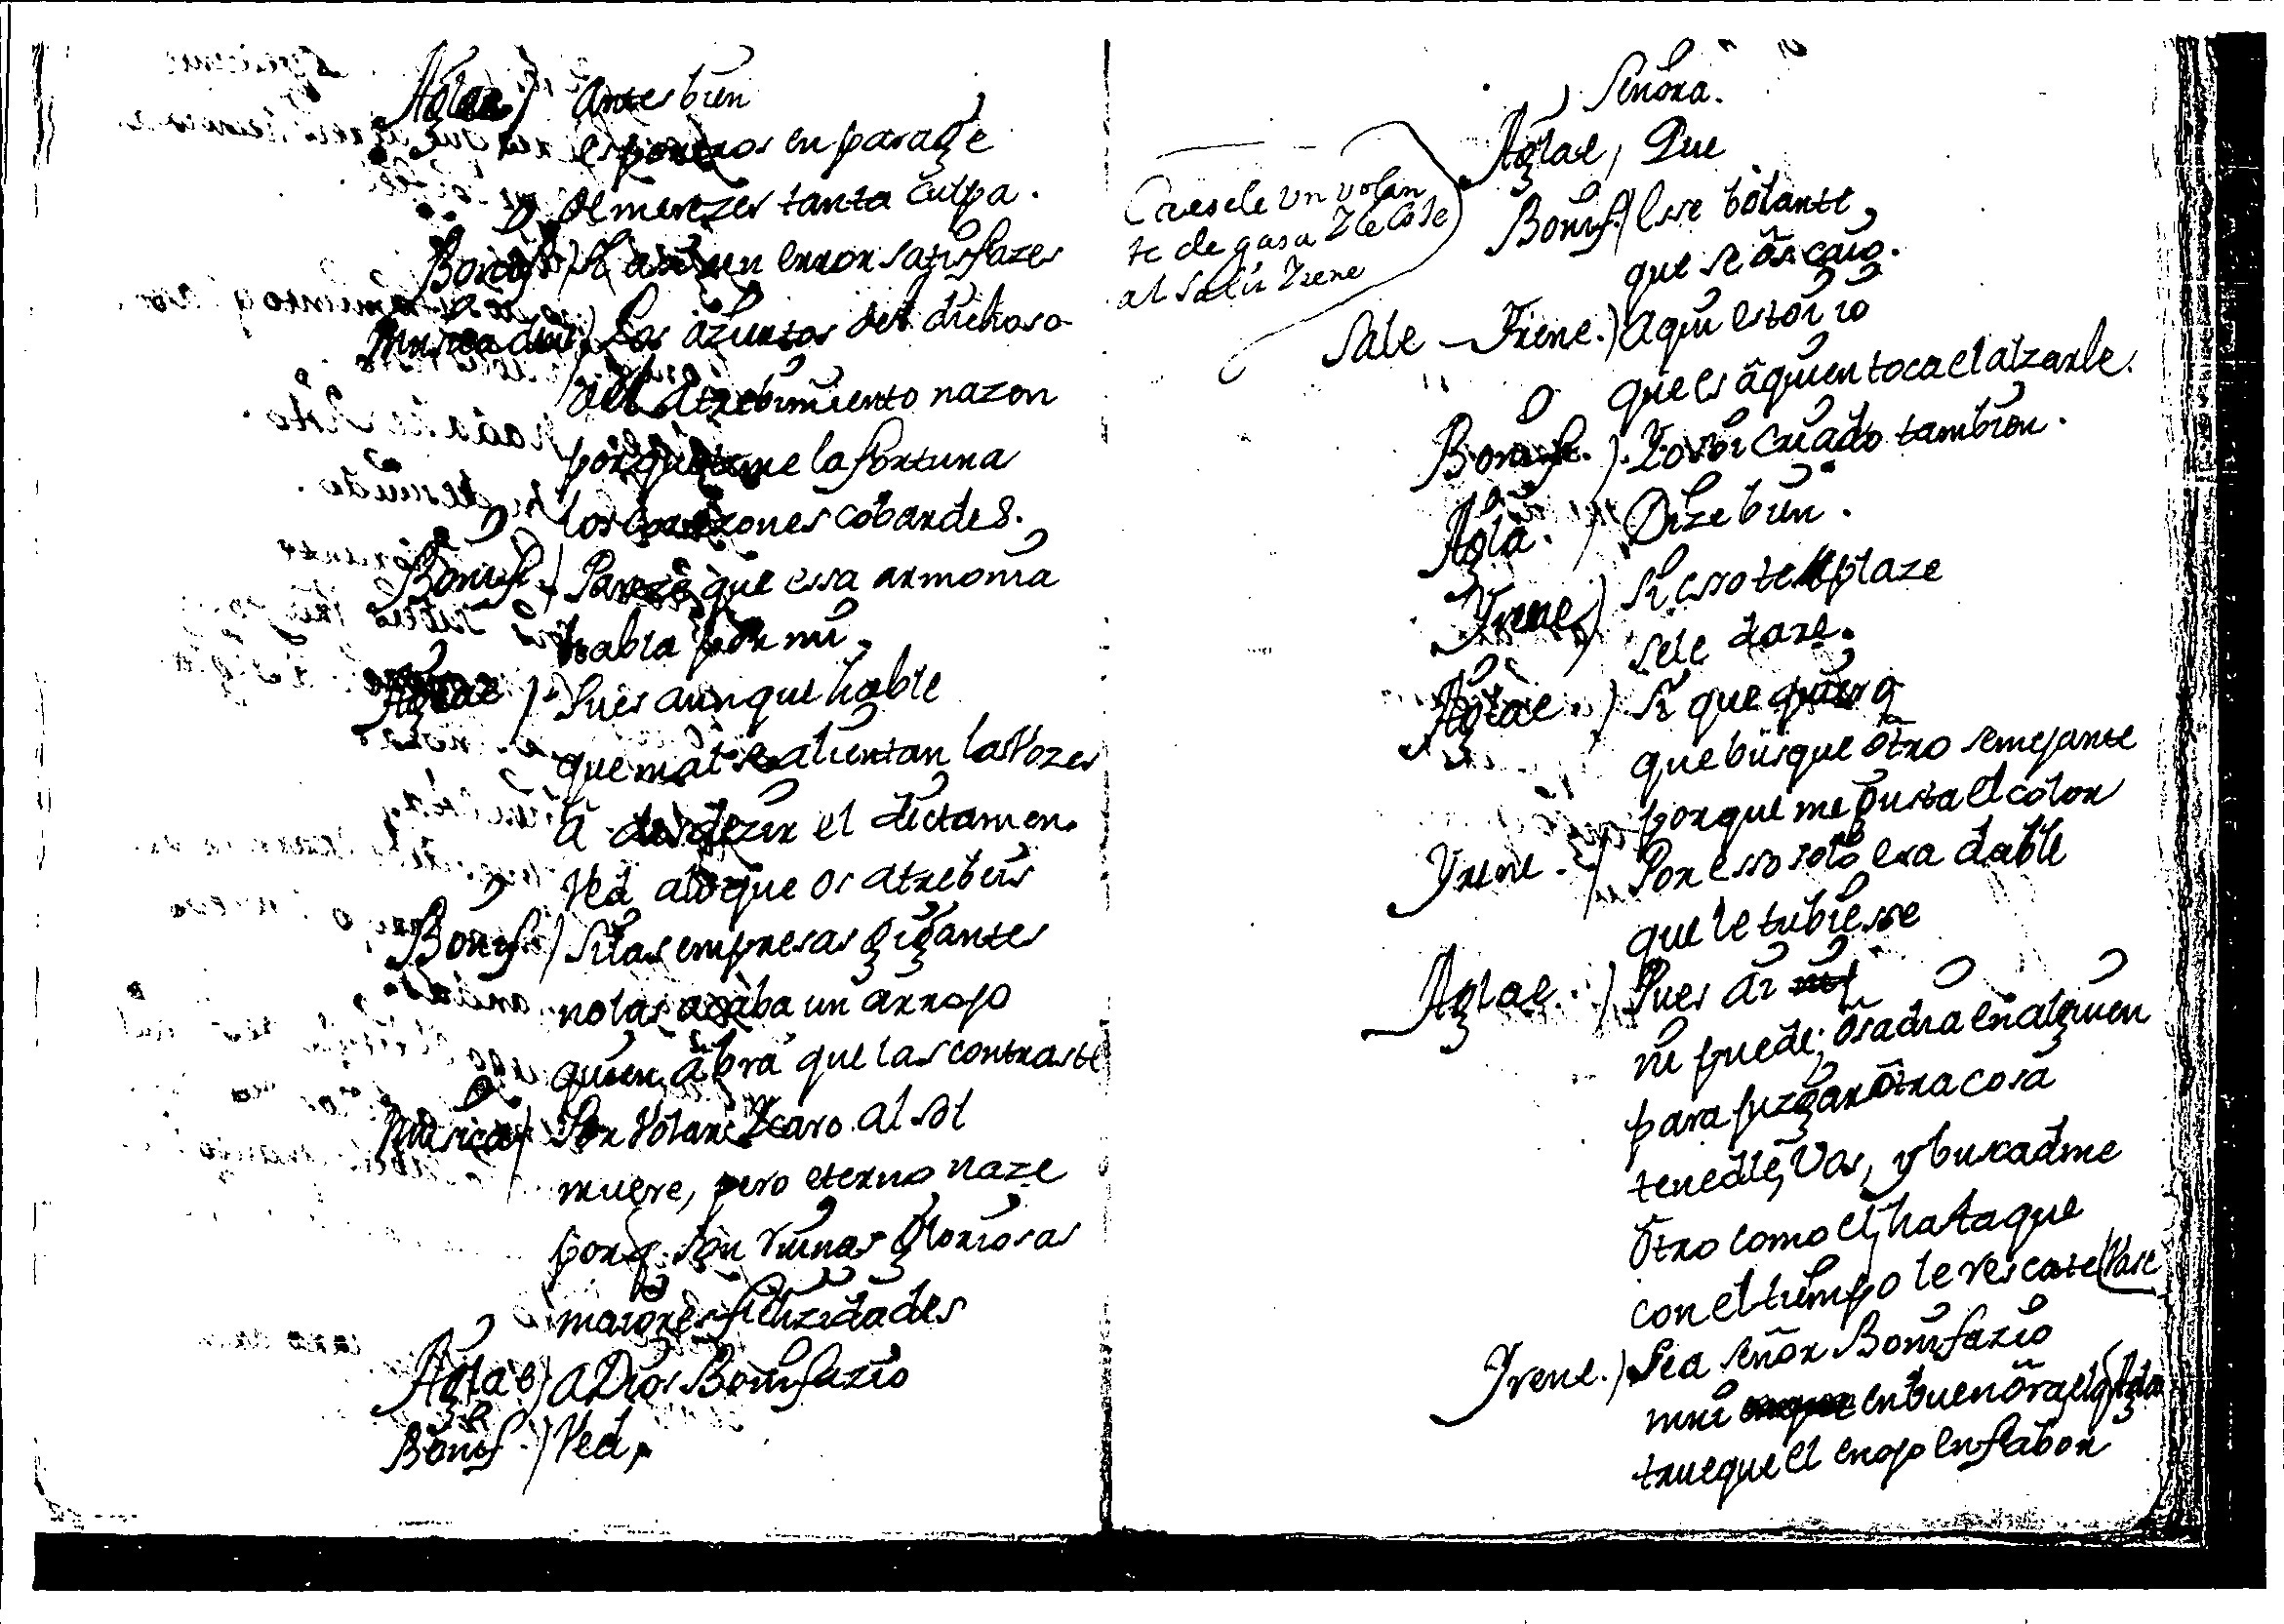 Aglae) antes bien
es poneros en parage
de merezer tanta culpa.
Bonif) si assi un error satisfazes
Musica den) Los azientos del dichoso
del atrebimiento nazen
porque teme la fortuna
los corazones cobardes.
Bonif.) Pareze que essa armonia
habla por mi,
Aglae) Pues aunque hable
que mal se alientan las vozes
a desdezir el dictamen.
Ved a lo que os atrebeis
Bonif) Si las empresas gigantes
no las acaba un arrojo
quien abra que las contraste
Musica) Por volar Icaro al sol
muere, pero eterno naze
porq. son ruinas gloriosas
maiores felizidades
Aglae) a Dios Bonifazio
Bonif.) Ved,
Señora.
Aglae, Que
Caesele un volan
te de gasa y le coje
al salir Irene
Bonif.) Esse bolante,
que se os caio.
Sale - Irene.) aqui estoi io
que es a quien toca el alzarle.
Bonif.) Io soi criado tambien.
Agla.) Dize bien.
Yrene) Si esso te plaze
sele dare.
Aglae.) Si que quiero
que busque otro semejante
porque me gusta el color
Yrene.) Por esso solo era dable
que le tubiesse
Aglae.) Pues ai
ni puede, osadia en alguien
para juzgar otra cosa
tenedle, Vos, y buscadme
otro como el, hasta que
con el tiempo le rescate (Vase
Yrene.) Sea señor Bonifazio
mui enbuenora, el q Agla
trueque el enojo en fabor